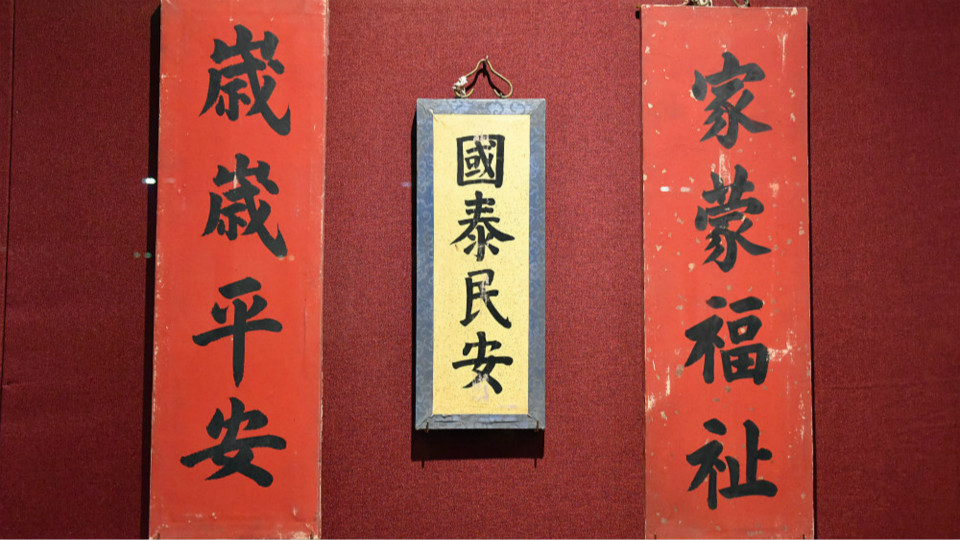 家蒙福祉
國泰民安
歳歳平安